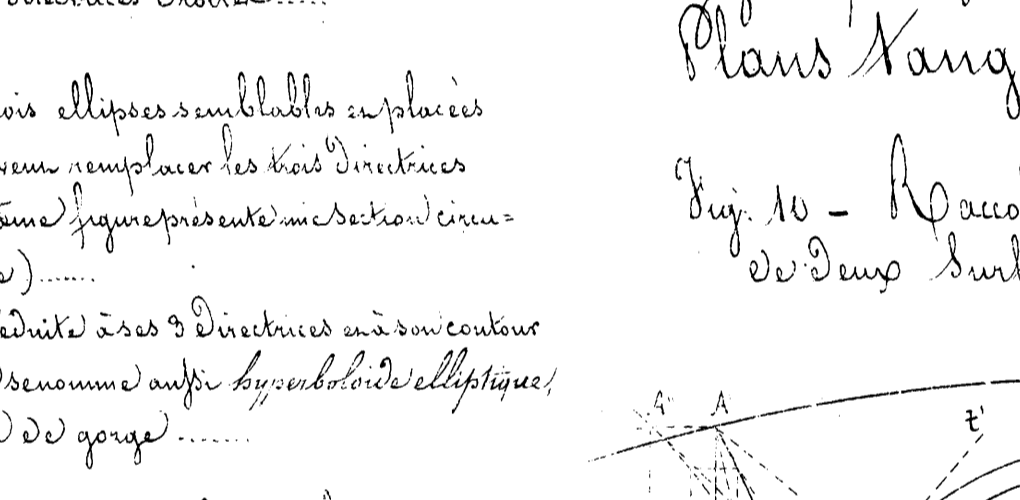 directrices droites......
ois ellipses semblables et placées
vent remplacer les trois Directrices
ème figure présente une section circu=
e).......
éduite à ses 3 Directrices et à son contour
se nomme aussi hyperboloïde elliptique,
de gorge.......
Plans Tang
Fig. 10 - Racco
de Deux Surf
G" A
t'